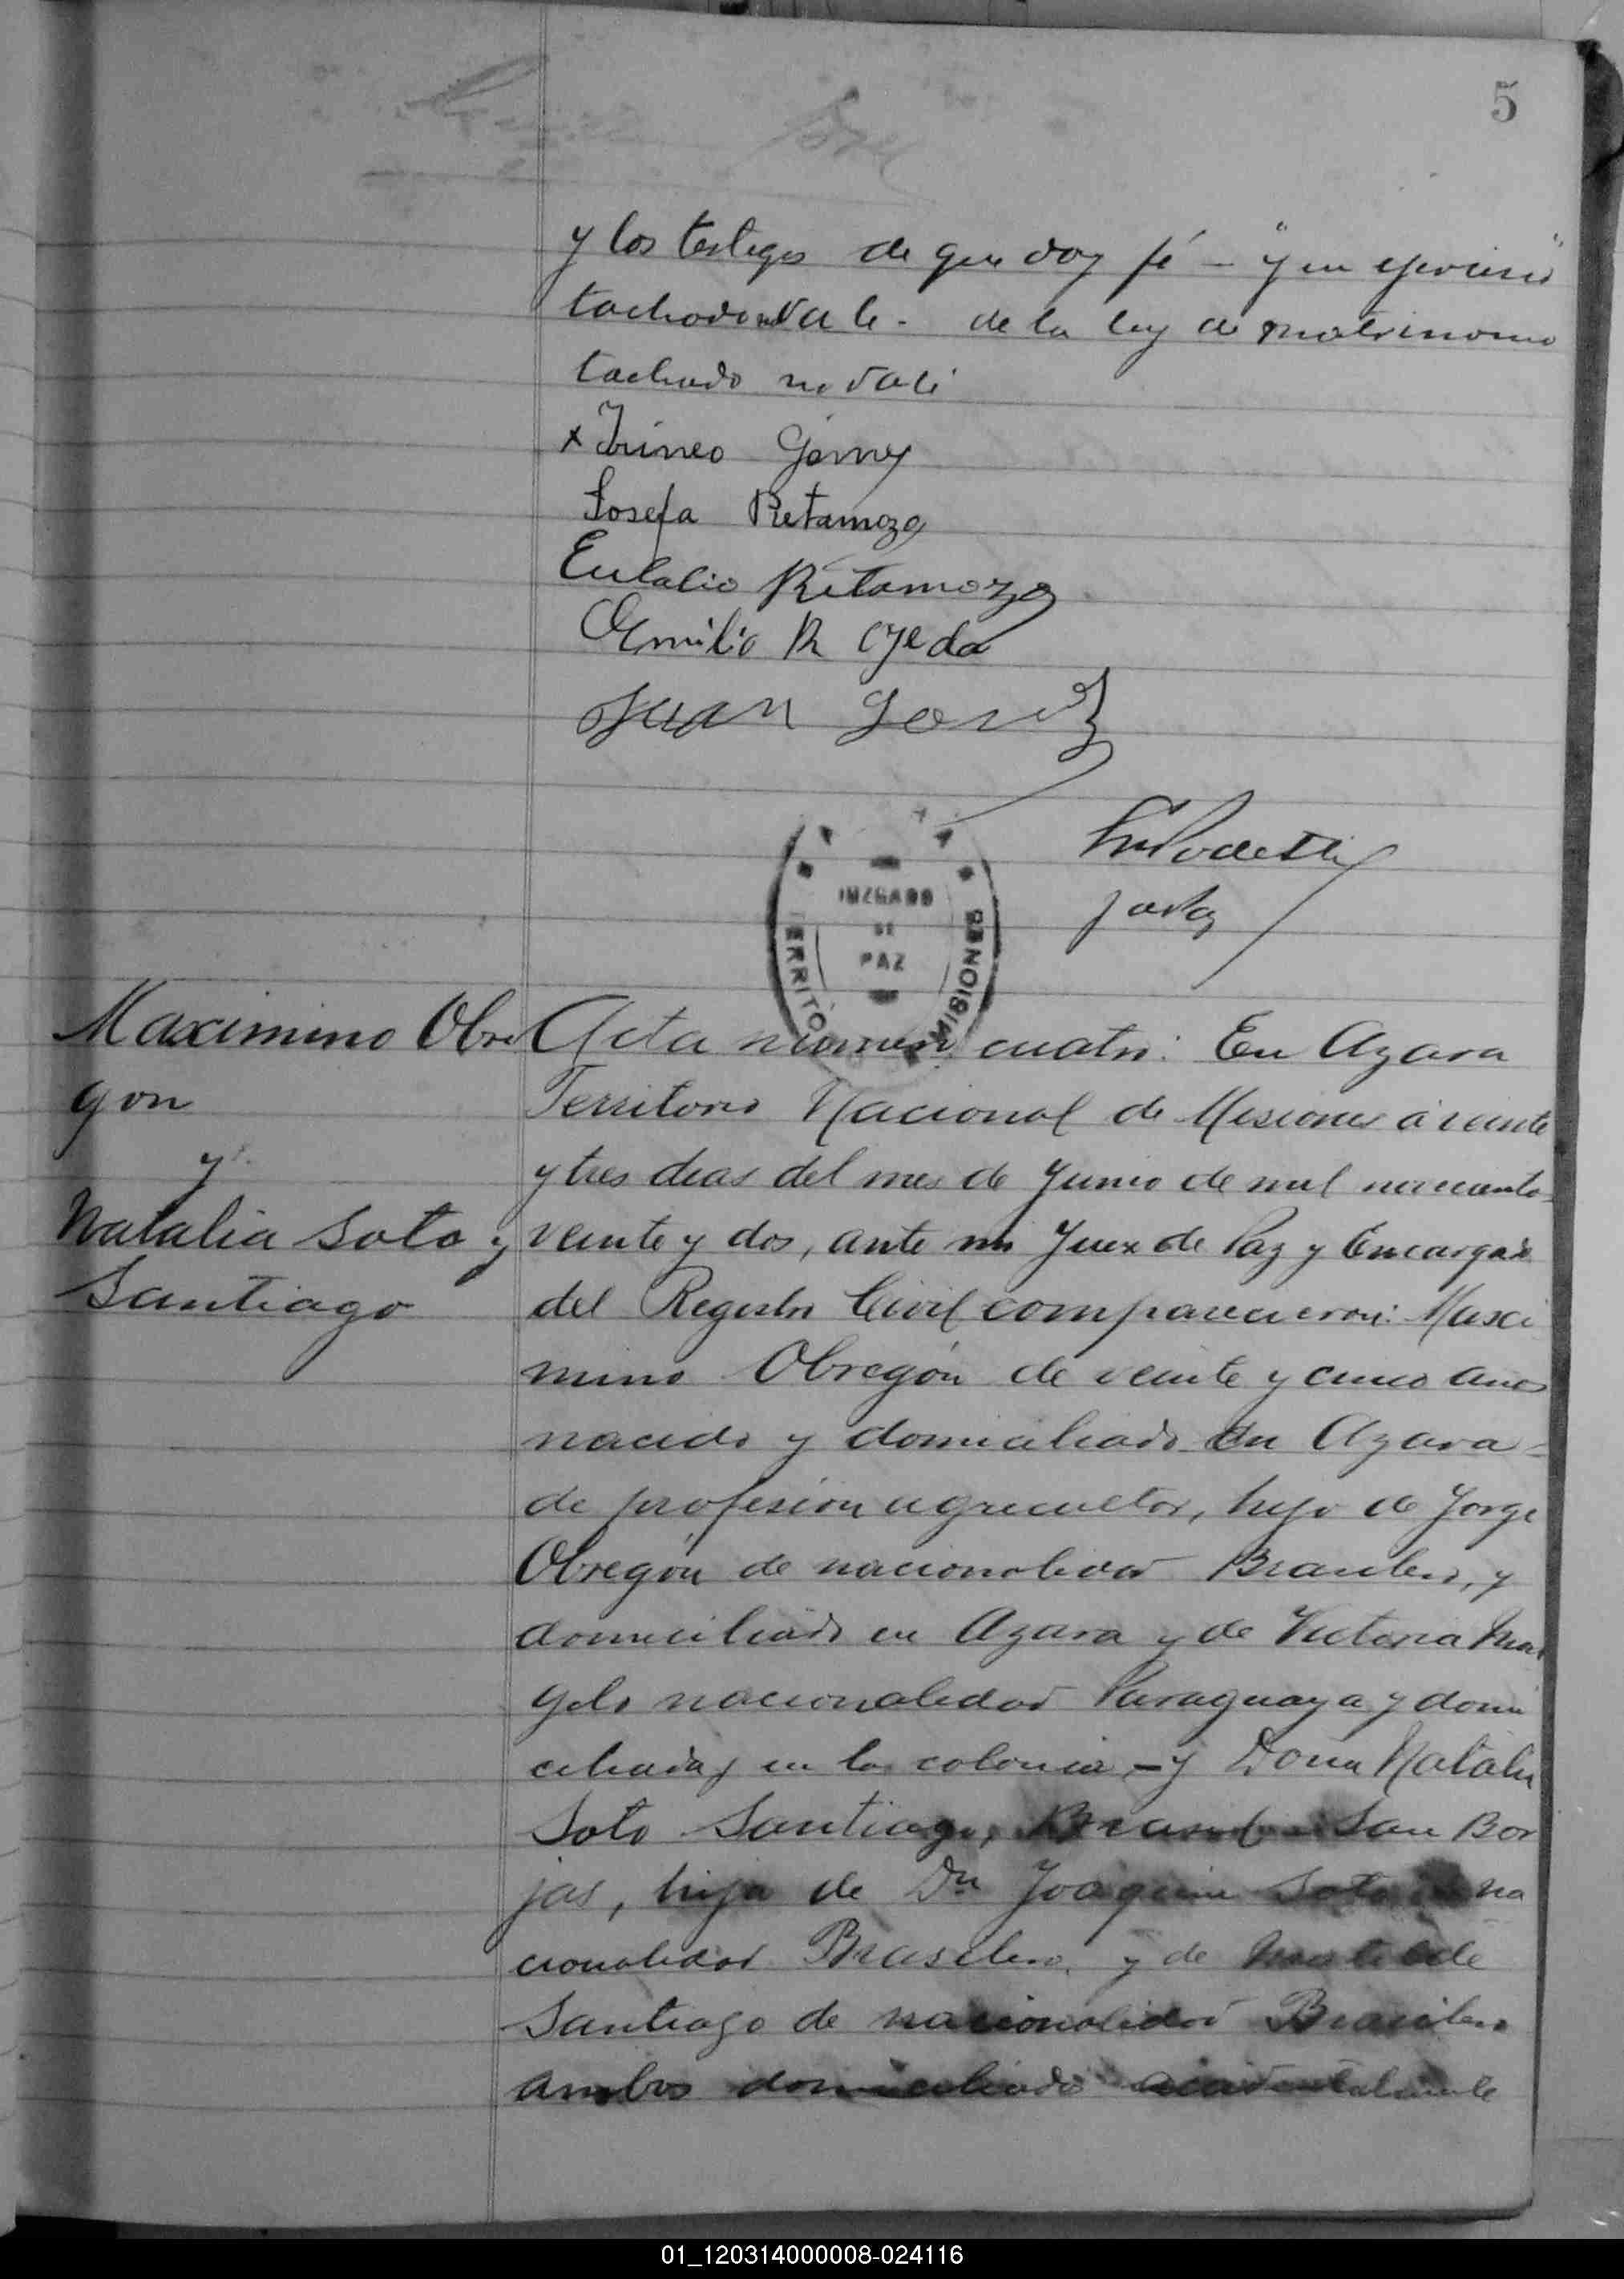 5
y los testigos de que doy fé — "y en ejercicio"
tachado no vale - de la ley de matrimonio
tachado no vale
x Irineo Gomez
Josefa Retamozo
Eulalio Retamozo
Emilio R Ojeda
Juan
JUZGADO
DE
PAZ
TERRITORIO MISIONES
Maximino Obre
gon
y
Natalia Soto y
Santiago
Acta número cuatro: En Azara
Territorio Nacional de Misiones á veinte
y tres dias del mes de Junio de mil novecientos
veinte y dos, ante mi Juez de Paz y Encargado
del Registro Civil comparecieron: Maxi
mino Obregón de veinte y cinco años
nacido y domiciliado en Azara -
de profesion agricultor, hijo de Jorge
Obregón de nacionalidad Brasilero, y
domiciliado en Azara y de Victoria
gelo nacionalidad Paraguaya y domi
ciliada, en la colonia - y Doña Natalia
Soto Santiago, Brasil San Bor
jas, hija de Dn Joaquin Soto de na
cionalidad Brasilero, y de Matilde
Santiago de nacionalidad Brasilera
ambos domiciliado accidentalmente
01_120314000008-024116